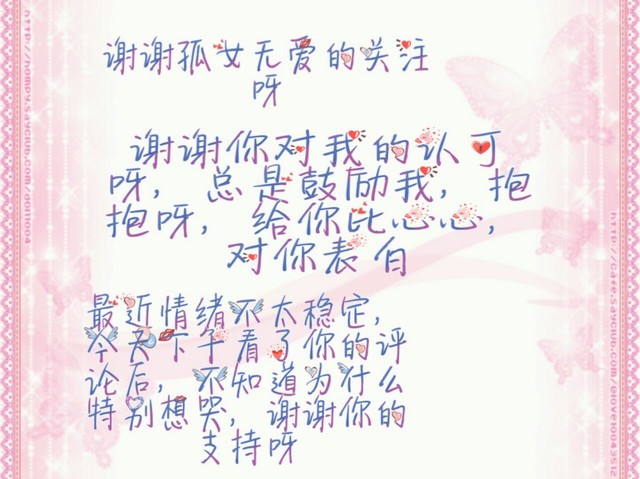 谢谢孤女无爱的关注
呀
谢谢你对我的认可
呀，总是鼓励我，抱
抱呀，给你比心心，
对你表白
最近情绪不太稳定，
今天下午看了你的评
论后，不知道为什么
特别想哭，谢谢你的
支持呀